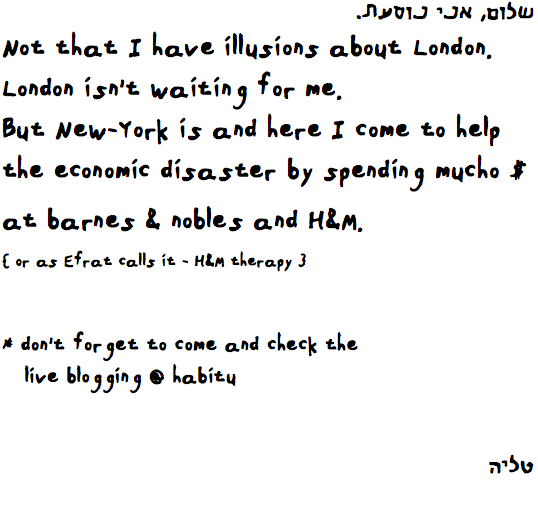 שלום, אני נוסעת.
Not that I have illusions about London.
London isn't waiting for me.
But New-York is and here I come to help
the economic disaster by spending mucho $
at barnes & nobles and H&M.
{ or as Efrat calls it - H&M therapy }
* don't forget to come and check the
live blogging @ habitu
טליה